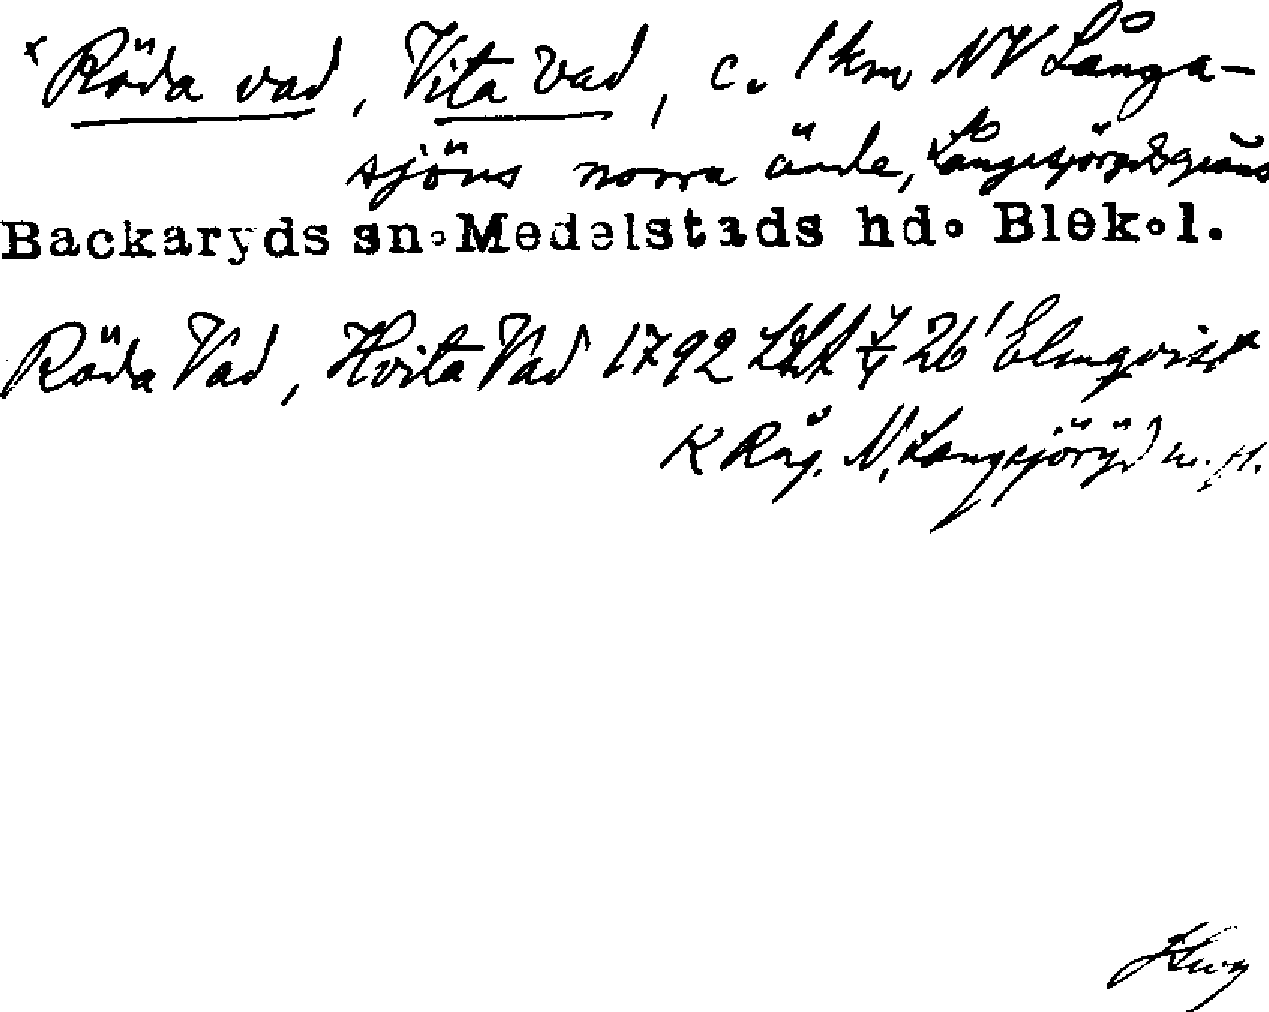 x Röda vad, Vita vad, c. 1 km NV Långa-
sjöns norra ände, Långasjörydsgräns
Backaryds sn. Medelstads hd. Blek. l.
Röda Vad, Hvita Vad 1792 26 Elmqvist
K Råg. N. Långsjöryd m. fl.